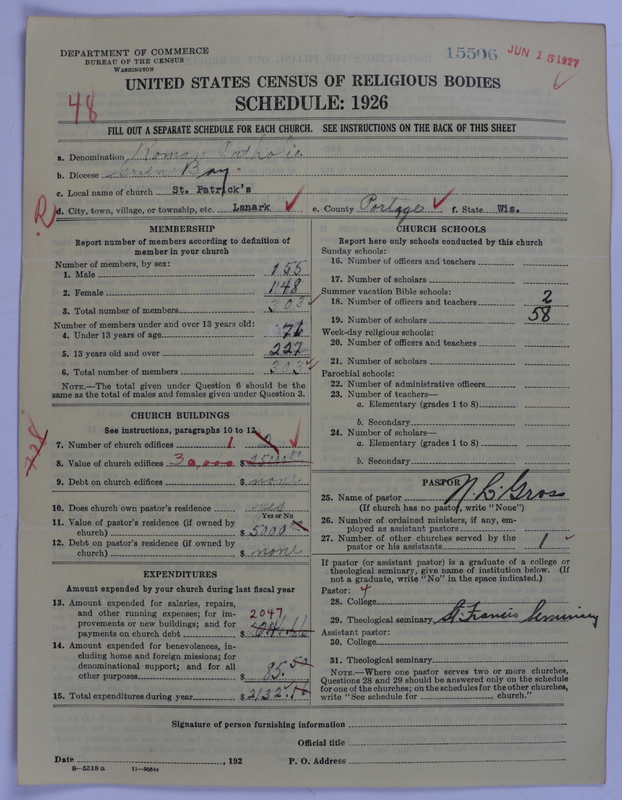 DEPARTMENT OF COMMERCE
BUREAU OF THE CENSUS
WASHINGTON
15506 JUN 15 1927
UNITED STATES CENSUS OF RELIGIOUS BODIES
48
SCHEDULE: 1926
FILL OUT A SEPARATE SCHEDULE FOR EACH CHURCH. SEE INSTRUCTIONS ON THE BACK OF THIS SHEET
a. Denomination Roman Catholic
b. Diocese Green Bay
c. Local name of church St. Patrick's
R d. City, town, village, or township, etc. Lanark e. County Portage f. State Wis.
MEMBERSHIP
Report number of members according to definition of
member in your church
Number of members, by sex:
1. Male 155
2. Female 148
3. Total number of members 303
Number of members under and over 13 years old:
4. Under 13 years of age 76
5. 13 years old and over 227
6. Total number of members 303
NOTE.—The total given under Question 6 should be the
same as the total of males and females given under Question 3.
CHURCH BUILDINGS
See instructions, paragraphs 10 to 12
7. Number of church edifices 1
8. Value of church edifices 30,000 $
9. Debt on church edifices $ none
10. Does church own pastor's residence yes
Yes or No
11. Value of pastor's residence (if owned by
church) $ 5000
12. Debt on pastor's residence (if owned by
church) $ none
EXPENDITURES
Amount expended by your church during last fiscal year
13. Amount expended for salaries, repairs,
and other running expenses; for im-
provements or new buildings; and for
payments on church debt $ 2047
14. Amount expended for benevolences, in-
cluding home and foreign missions; for
denominational support; and for all
other purposes $ 85.50
15. Total expenditures during year $ 2132.16
CHURCH SCHOOLS
Report here only schools conducted by this church
Sunday schools:
16. Number of officers and teachers
17. Number of scholars
Summer vacation Bible schools:
18. Number of officers and teachers 2
19. Number of scholars 58
Week-day religious schools:
20. Number of officers and teachers
21. Number of scholars
Parochial schools:
22. Number of administrative officers
23. Number of teachers—
a. Elementary (grades 1 to 8)
b. Secondary
24. Number of scholars—
a. Elementary (grades 1 to 8)
b. Secondary
PASTOR
25. Name of pastor N. L. Gross
(If church has no pastor, write "None")
26. Number of ordained ministers, if any, em-
ployed as assistant pastors
27. Number of other churches served by the
pastor or his assistants 1
If pastor (or assistant pastor) is a graduate of a college or
theological seminary, give name of institution below. (If
not a graduate, write "No" in the space indicated.)
Pastor: 4
28. College
29. Theological seminary St Francis Seminary
Assistant pastor:
30. College
31. Theological seminary
NOTE.—Where one pastor serves two or more churches,
Questions 28 and 29 should be answered only on the schedule
for one of the churches; on the schedules for the other churches,
write "See schedule for church."
Signature of person furnishing information
Official title
Date , 192 P. O. Address
8—5518 a 11—9056a